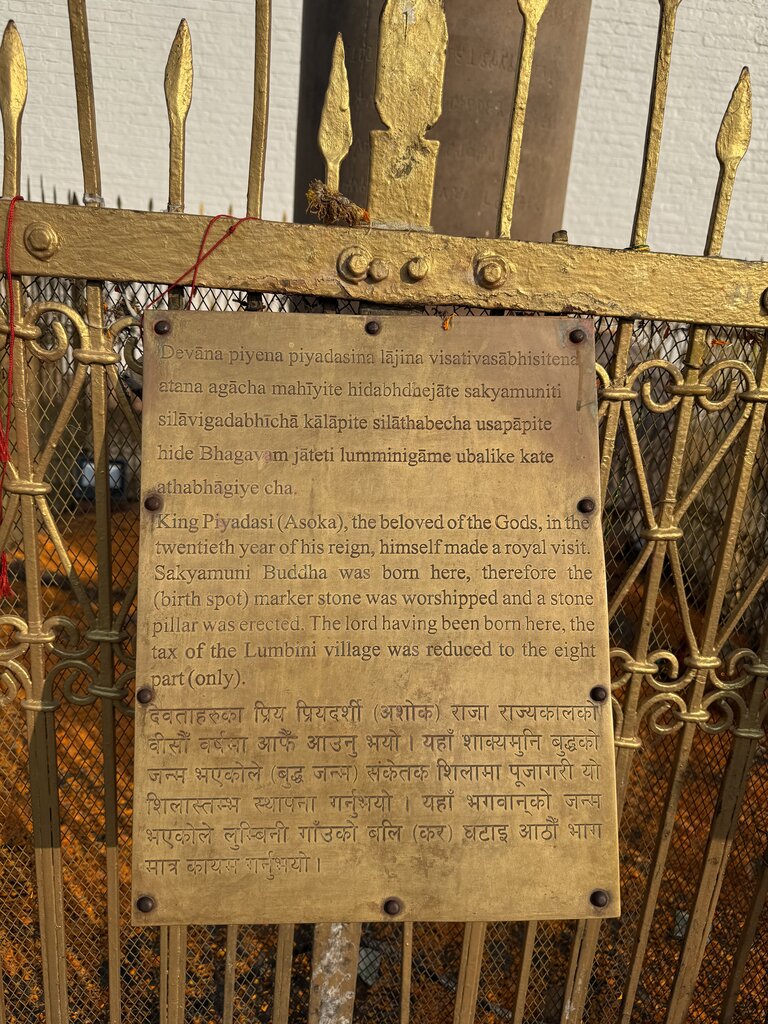 Devāna piyena piyadasina lājina visativasābhisitena
atana agācha mahīyite hidabhdhejāte sakyamuniti
silāvigadabhīchā kālāpite silāthabecha usapāpite
hide Bhagavaṃ jāteti lumminigāme ubalike kate
athabhāgiye cha.
King Piyadasi (Asoka), the beloved of the Gods, in the
twentieth year of his reign, himself made a royal visit.
Sakyamuni Buddha was born here, therefore the
(birth spot) marker stone was worshipped and a stone
pillar was erected. The lord having been born here, the
tax of the Lumbini village was reduced to the eight
part (only).
देवताहरुका प्रिय प्रियदर्शी (अशोक) राजा राज्यकालको
वीसौं वर्षमा आफैं आउनु भयो । यहाँ शाक्यमुनि बुद्धको
जन्म भएकोले (बुद्ध जन्म) संकेतक शिलामा पूजागरी यो
शिलास्तम्भ स्थापना गर्नुभयो । यहाँ भगवान्को जन्म
भएकोले लुम्बिनी गाँउको बलि (कर) घटाइ आठौं भाग
मात्र कायम गर्नुभयो ।